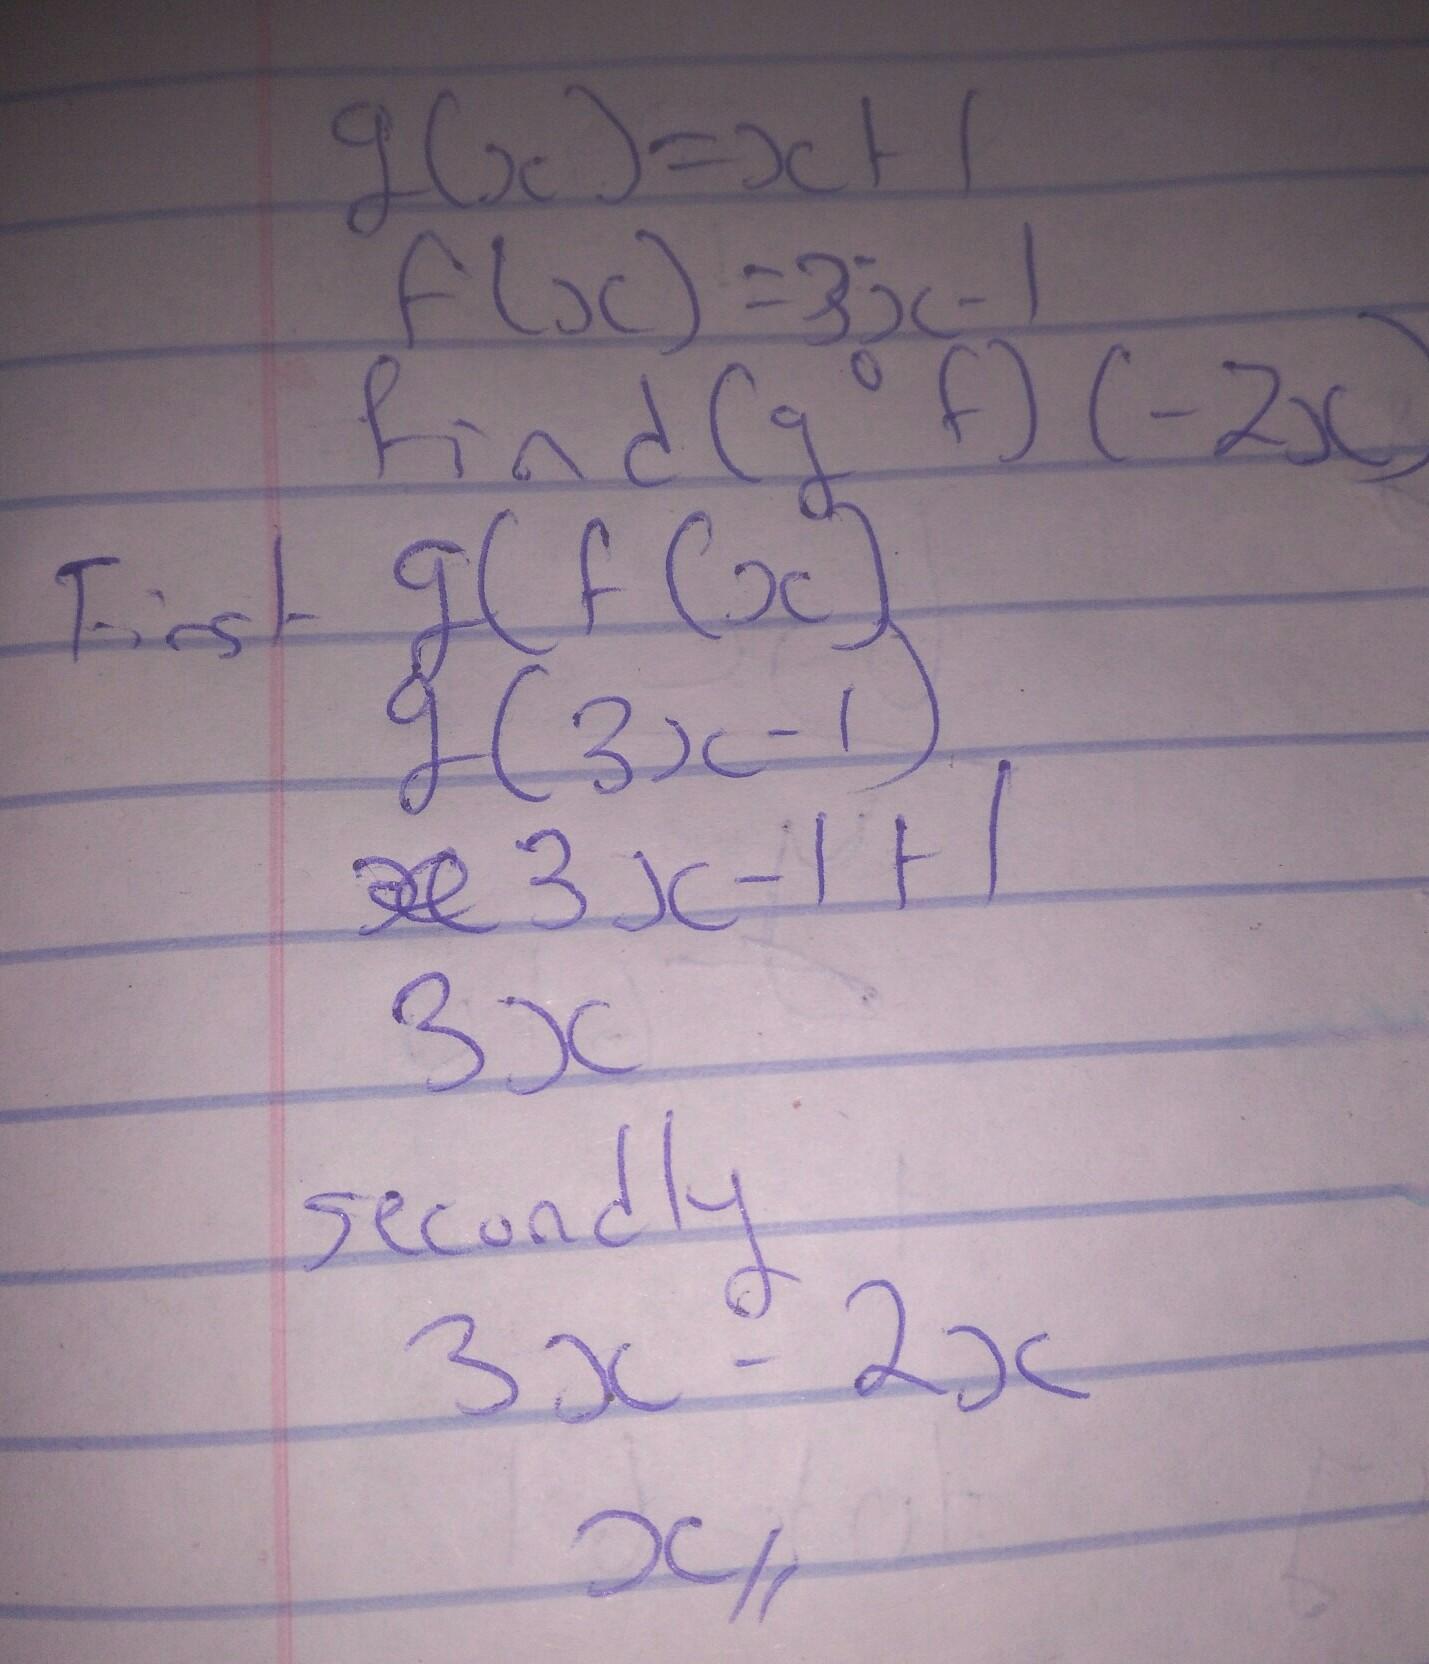 g(x)=x+1
f(x)=3x-1
find(g°f)(-2x)
First g(f(x)
g(3x-1)
3x-1+1
3x
secondly
3x-2x
x,,